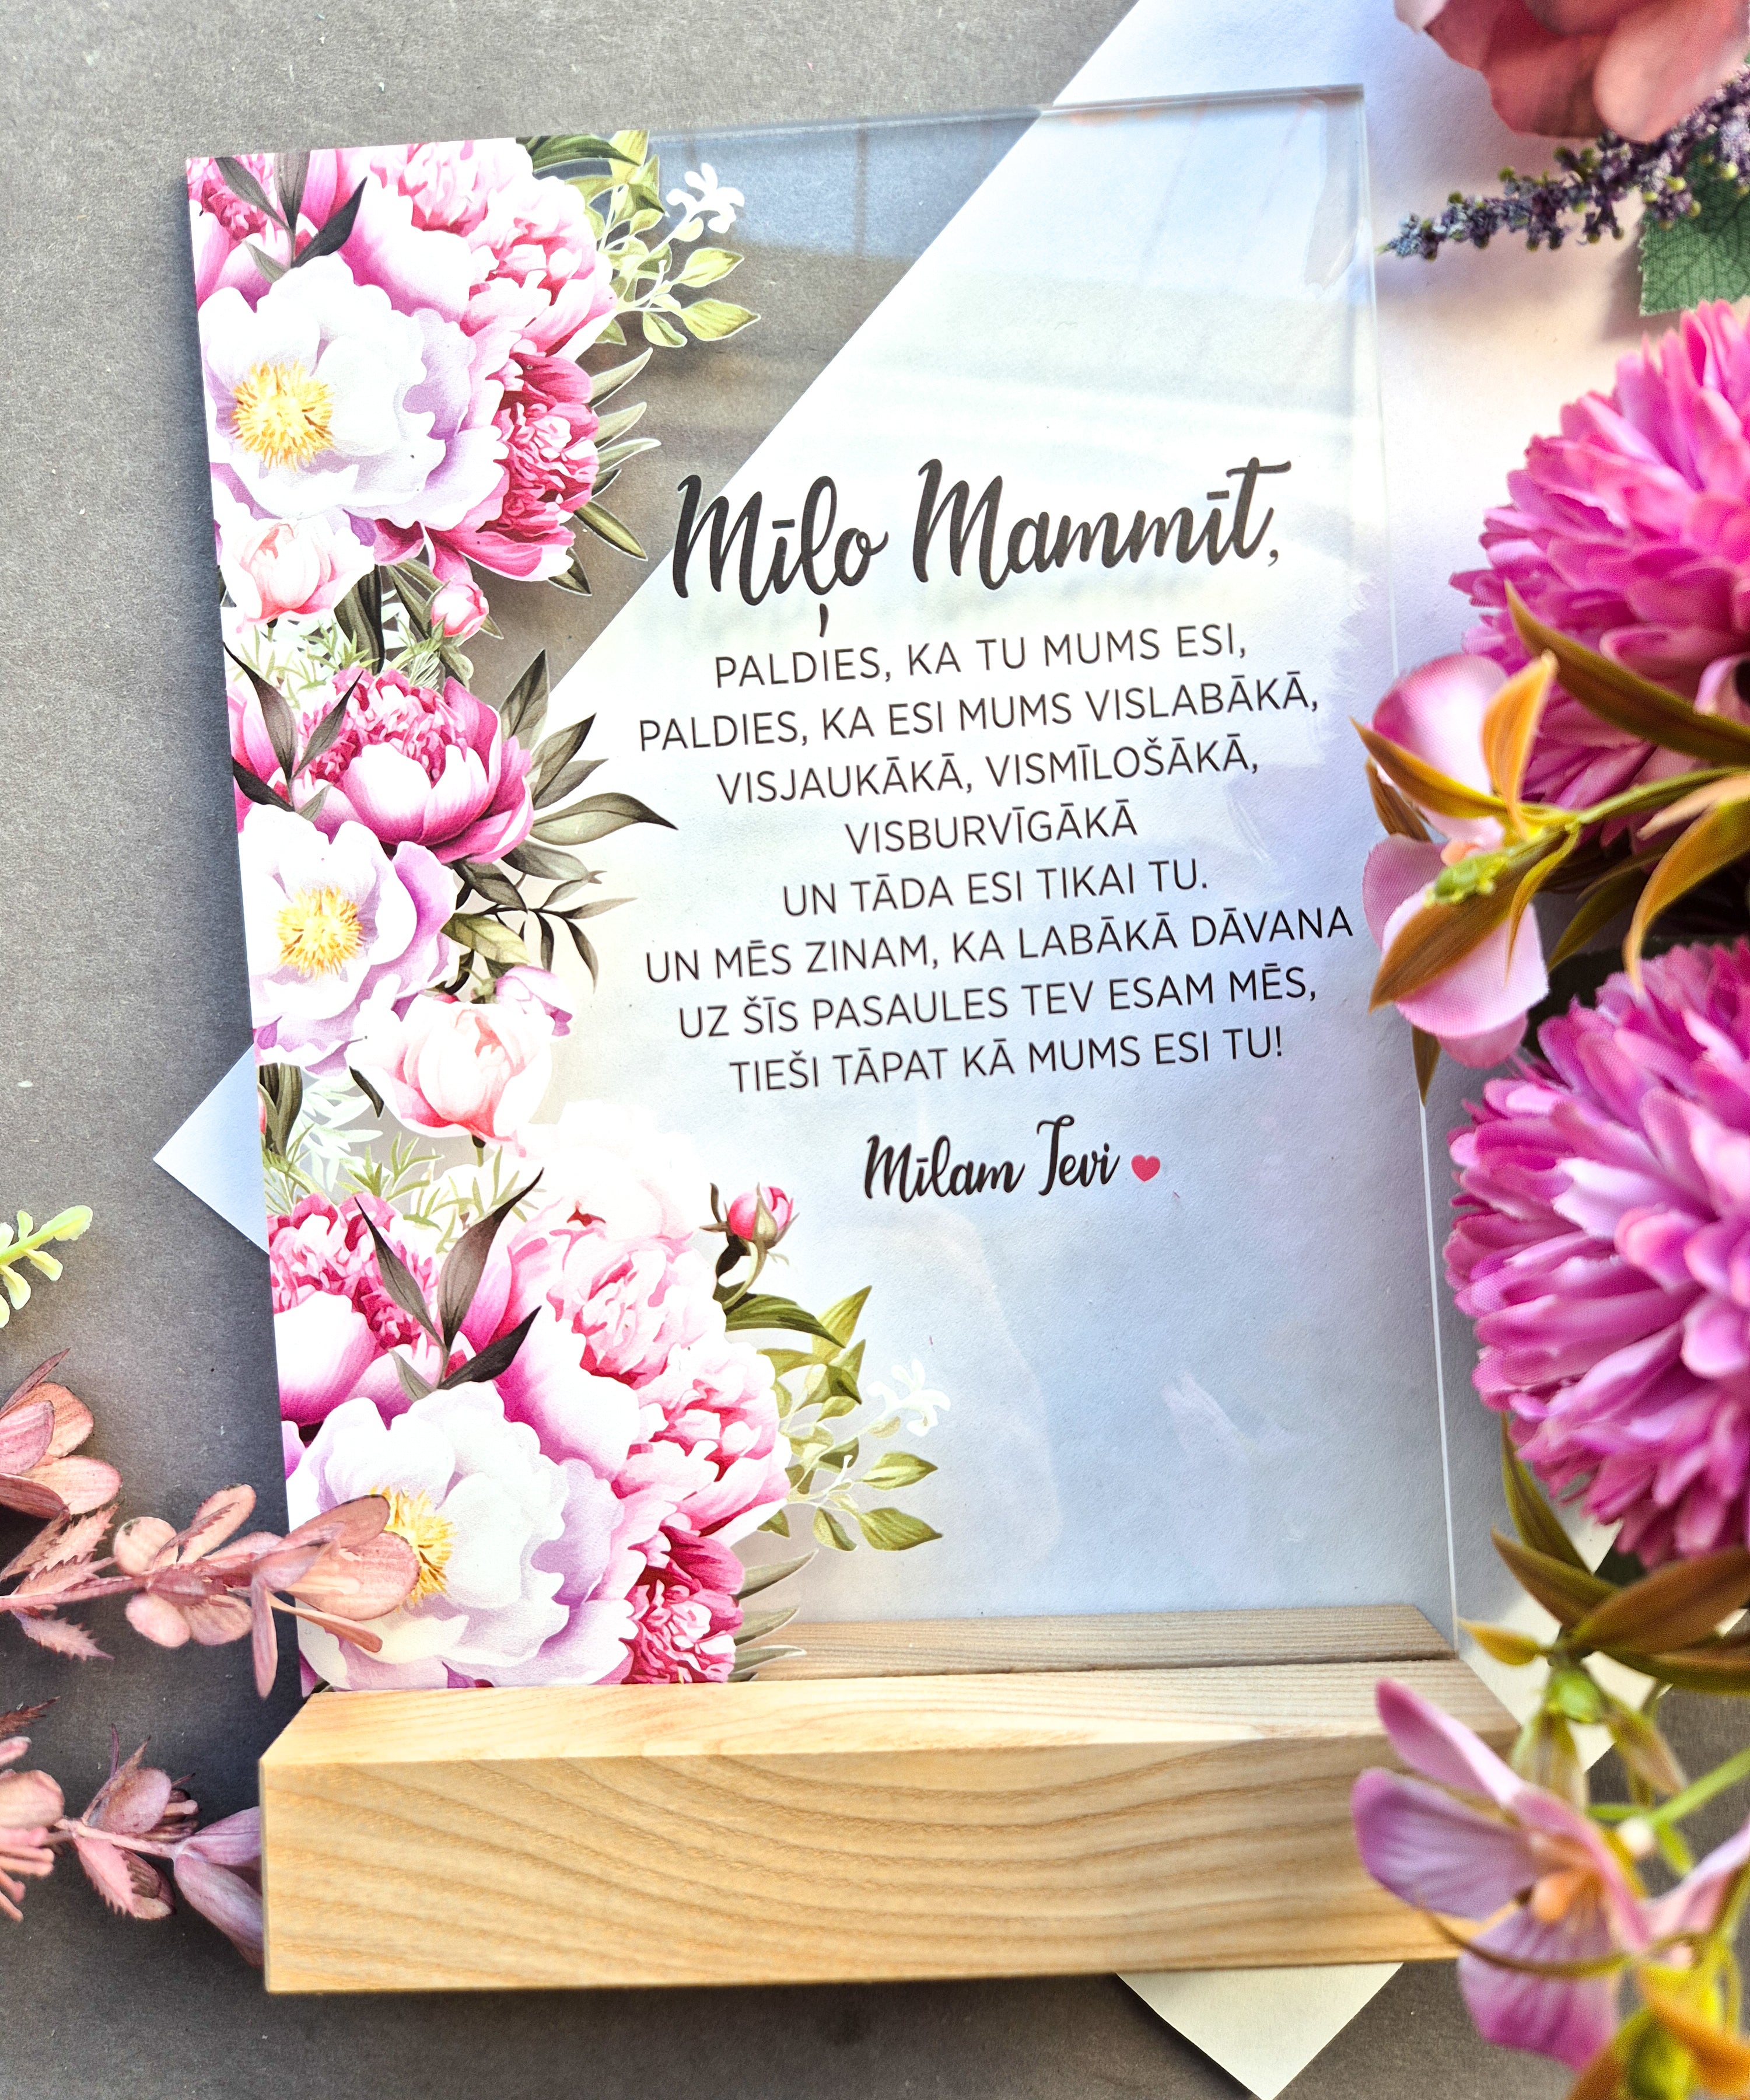 Mīļo Mammīt,
PALDIES, KA TU MUMS ESI,
PALDIES, KA ESI MUMS VISLABĀKĀ,
VISJAUKĀKĀ, VISMĪLOŠĀKĀ,
VISBURVĪGĀKĀ
UN TĀDA ESI TIKAI TU.
UN MĒS ZINAM, KA LABĀKĀ DĀVANA
UZ ŠĪS PASAULES TEV ESAM MĒS,
TIEŠI TĀPAT KĀ MUMS ESI TU!
Mīlam Tevi ❤